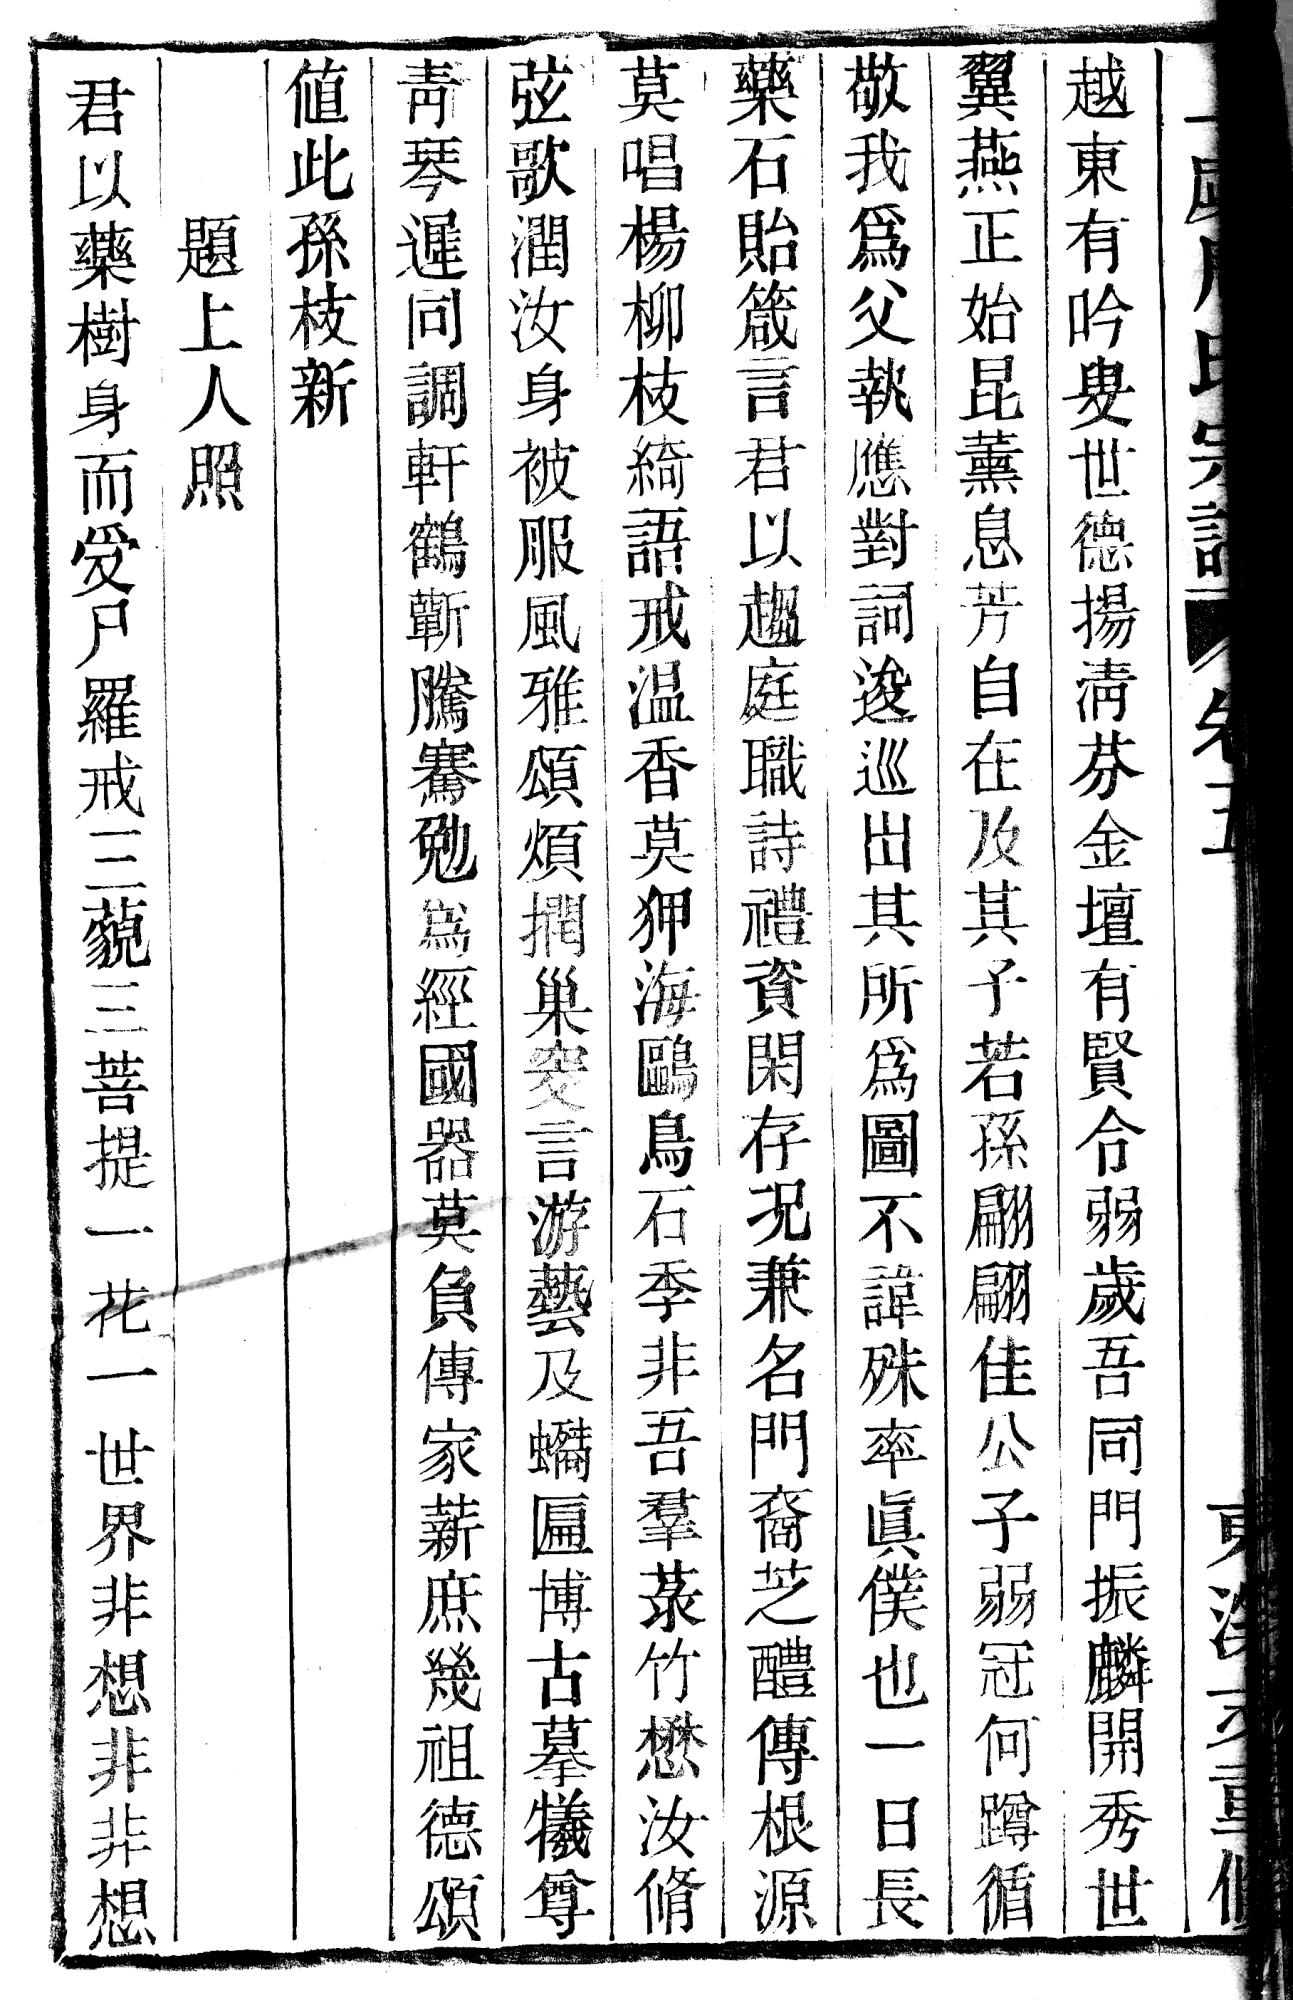 氏宗譜 卷五
越東有吟叟世德揚淸芬金壇有賢令弱歲吾同門振麟開秀世
翼燕正始昆薰息芳自在及其子若孫翩翩佳公子弱冠何蹲循
敬我爲父執應對詞逡巡出其所爲圖不諱殊率眞僕也一日長
藥石貽箴言君以趨庭職詩禮資閑存况兼名門裔芝醴傳根源
莫唱楊柳枝綺語戒温香莫狎海鷗鳥石季非吾羣菉竹懋汝脩
弦歌潤汝身被服風雅頌煩撋巢窔言游藝及蠨匾博古摹犧尊
靑琴遲同調軒鶴蘄騰騫勉爲經國器莫負傳家薪庶幾祖德頌
値此孫枝新
題上人照
君以藥樹身而受尸羅戒三藐三菩提一花一世界非想非非想